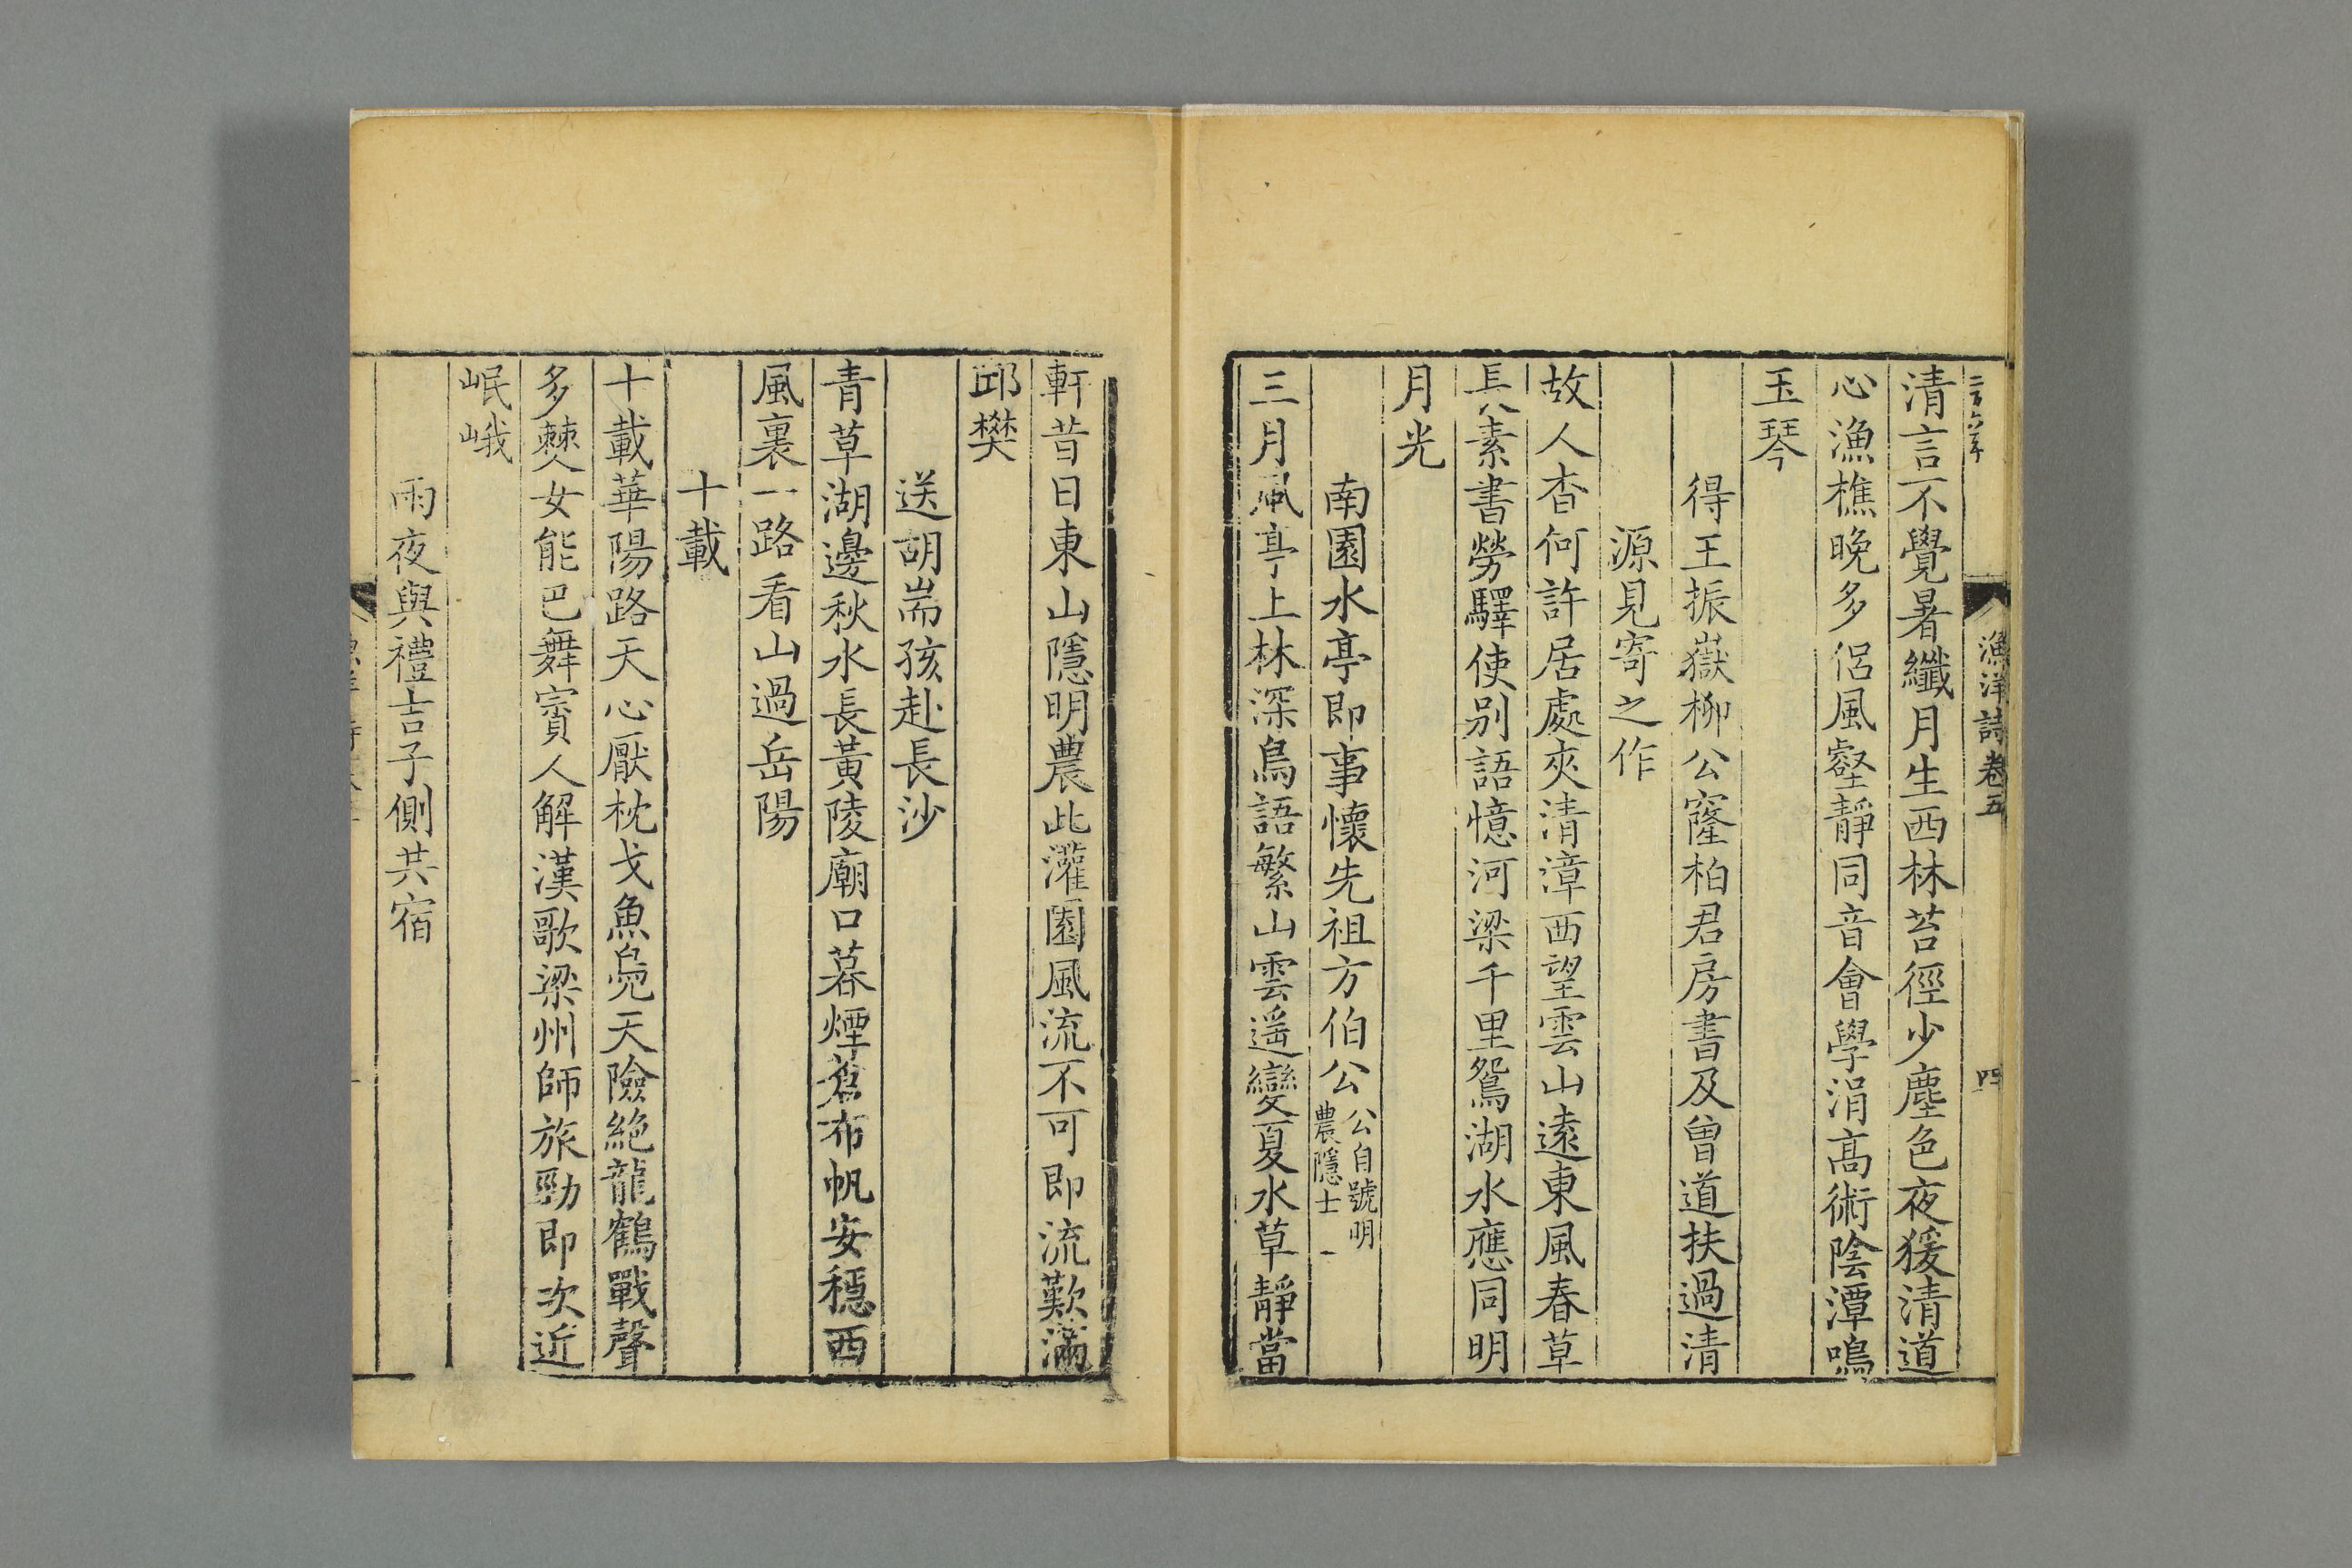 漁洋詩卷五
四
清言不覺暑纖月生西林苔徑少塵色夜猨清道
心漁樵晚多侶風壑靜同音會學涓髙術陰潭鳴
玉琴
得王振嶽柳公窿柏君房書及曾道扶過清
源見寄之作
故人杳何許居處夾清漳西望雲山逺東風春草
長素書勞驛使别語憶河梁千里鴛湖水應同明
月光
南園水亭即事懷先祖方伯公公自號明
農隱士
三月風亭上林深鳥語繁山雲遥變夏水草靜當
軒昔日東山隱明農此灌園風流不可即流歎滿
邱樊
送胡耑孩赴長沙
青草湖邊秋水長黃陵廟口暮煙蒼布帆安穩西
風裏一路看山過岳陽
十載
十載華陽路天心厭枕戈魚鳧天險絶龍鶴戰聲
多僰女能巴舞賨人解漢歌梁州師旅勁即次近
岷峨
雨夜與禮吉子側共宿